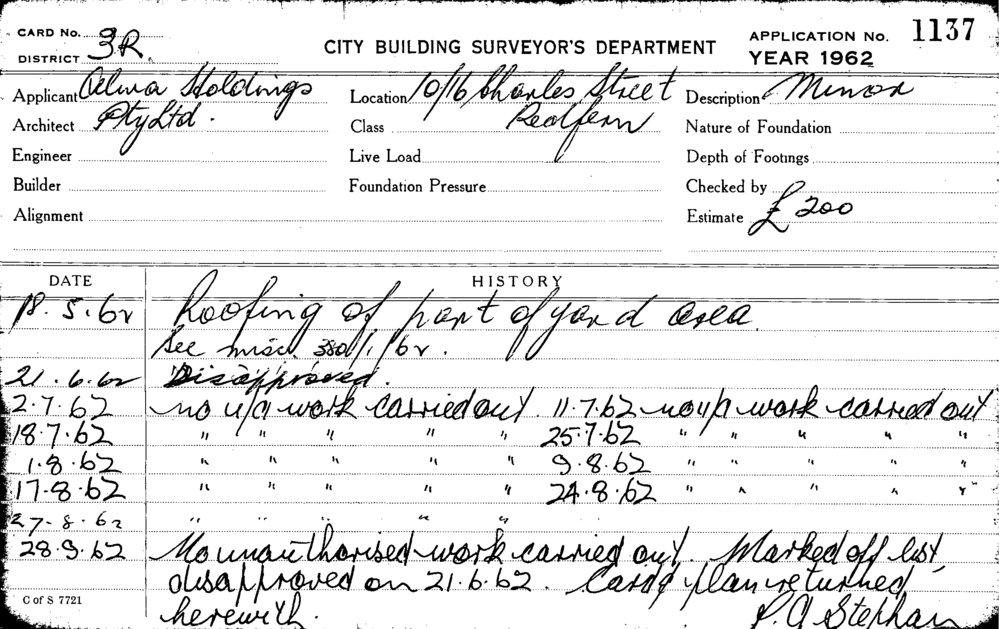 CARD No. 3R. CITY BUILDING SURVEYOR'S DEPARTMENT APPLICATION No. 1137
DISTRICT YEAR 1962
Applicant Alma Holdings Location 10/16 Charles Street Description Minor
Architect Pty Ltd. Class Redfern Nature of Foundation
Engineer Live Load Depth of Footings
Builder Foundation Pressure Checked by
Alignment Estimate £200
DATE HISTORY
18.5.62 Roofing of part of yard area.
See misc. 380/1/62.
21.6.62 Disapproved.
2.7.62 no u/a work carried out. 11.7.62 no u/a work carried out
18.7.62 " " " " " 25.7.62 " " " " "
1.8.62 " " " " " 9.8.62 " " " " "
17.8.62 " " " " " 24.8.62 " " " " "
27.8.62 " " " " "
28.9.62 No unauthorised work carried out. Marked off list
disapproved on 21.6.62. Card & plan returned
C of S 7721 herewith. P.A. Stephan